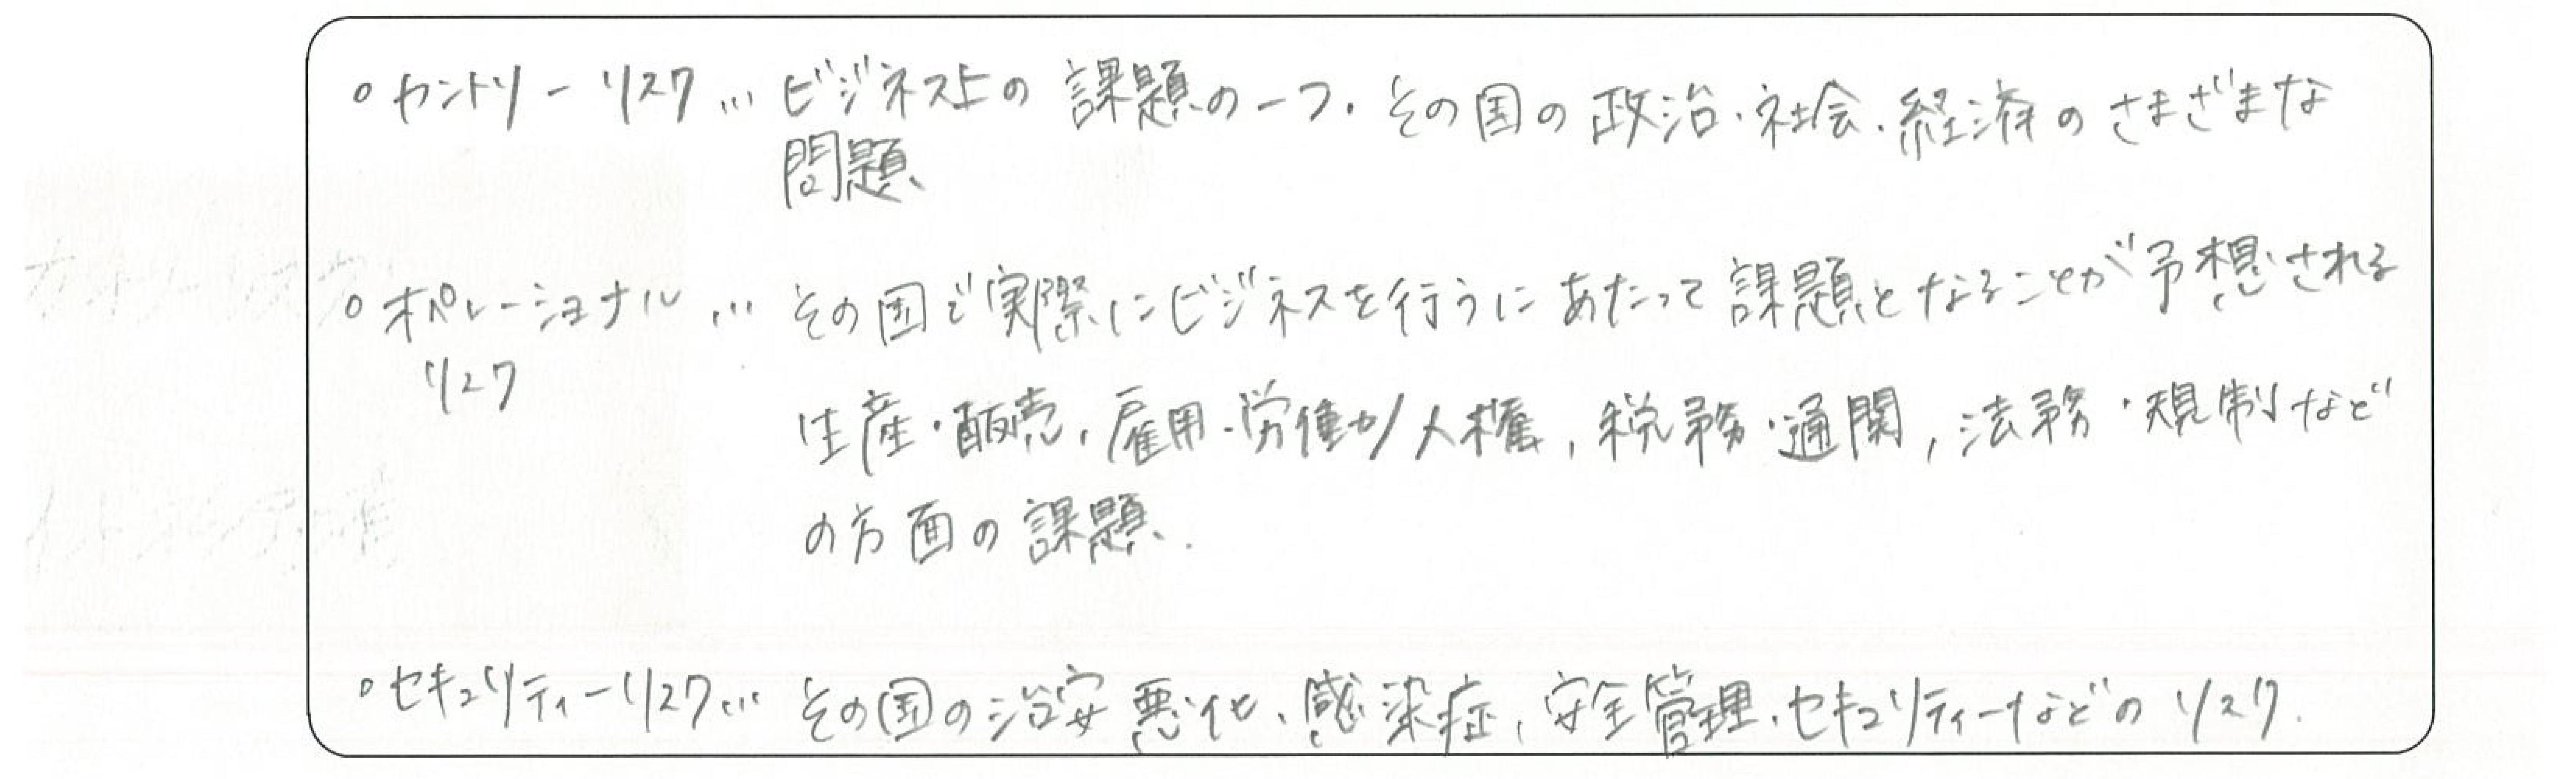 ◦カントリーリスク… ビジネス上の課題の一つ。その国の政治・社会・経済のさまざまな
問題
◦オペレーショナル… その国で実際にビジネスを行うにあたって課題となることが予想される
リスク
生産・販売、雇用・労働力/人権、税務・通関、法務・規制など
の方面の課題.
◦セキュリティーリスク… その国の治安悪化、感染症、安全管理、セキュリティーなどのリスク.